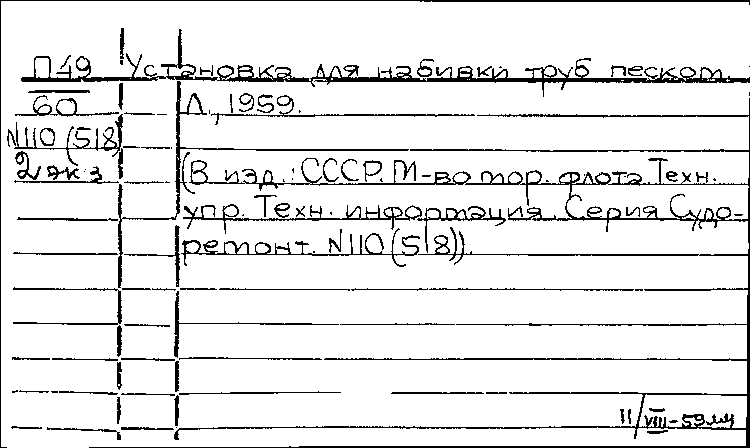 П49 Установка для набивки труб песком.
60 Л., 1959.
N110 (518)
2 экз (В изд.: СССР. М-во мор. флота. Техн.
упр. Техн. информация. Серия Судо-
ремонт. N110 (518)).
11/VIII-59